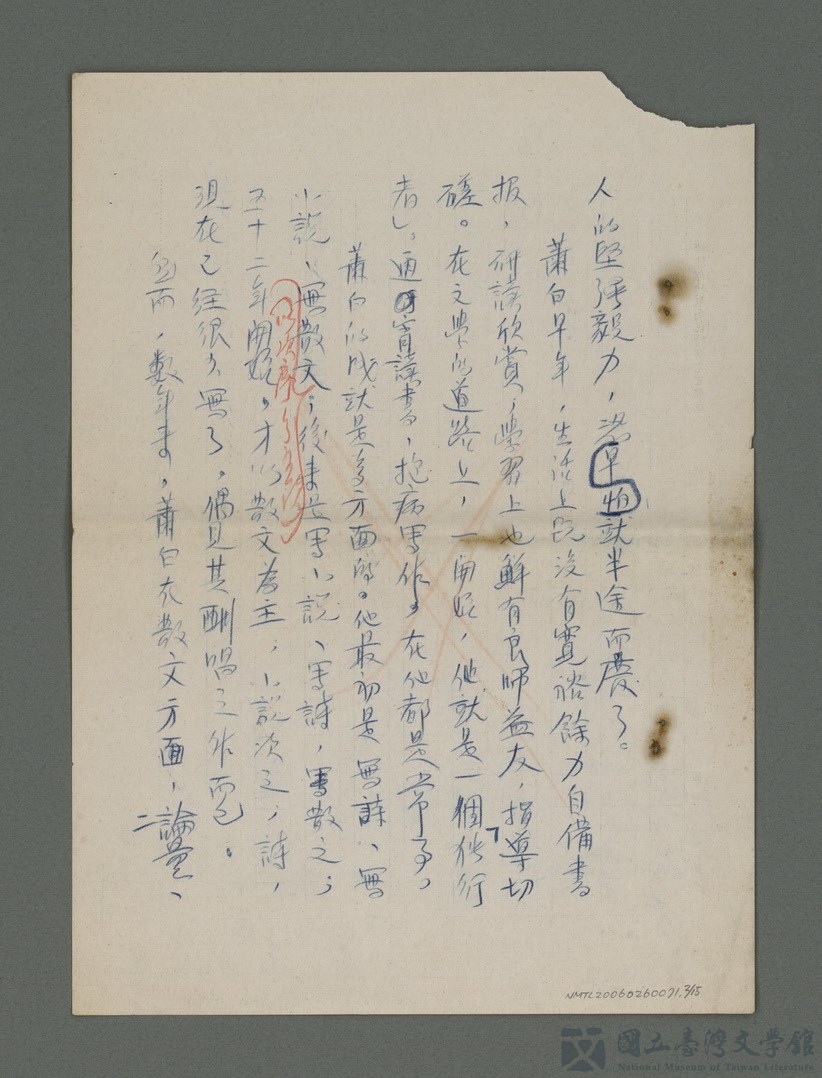 人的堅強毅力,恐早怕就半途而廢了。
蕭白早年,生活上既沒有寬裕餘力自備書
報,研讀欣賞;學習上也鮮有良師益友,指導切
磋。在文學的道路上,一開始,他就是一個「獨行
者」。通宵讀書,抱病寫作,在他都是常事。
蕭白的成就是多方面的。他最初是寫詩、寫
小說、寫散文;後來是寫小說、寫詩,寫散文;
五十二年開始,才以散文為主,小說次之,詩,
現在已經很少寫了。偶見其酬唱之作而已。
然而,數年來,蕭白在散文方面,論量、
NMTL20060260071, 2/15
國立臺灣文學館
National Museum of Taiwan Literature